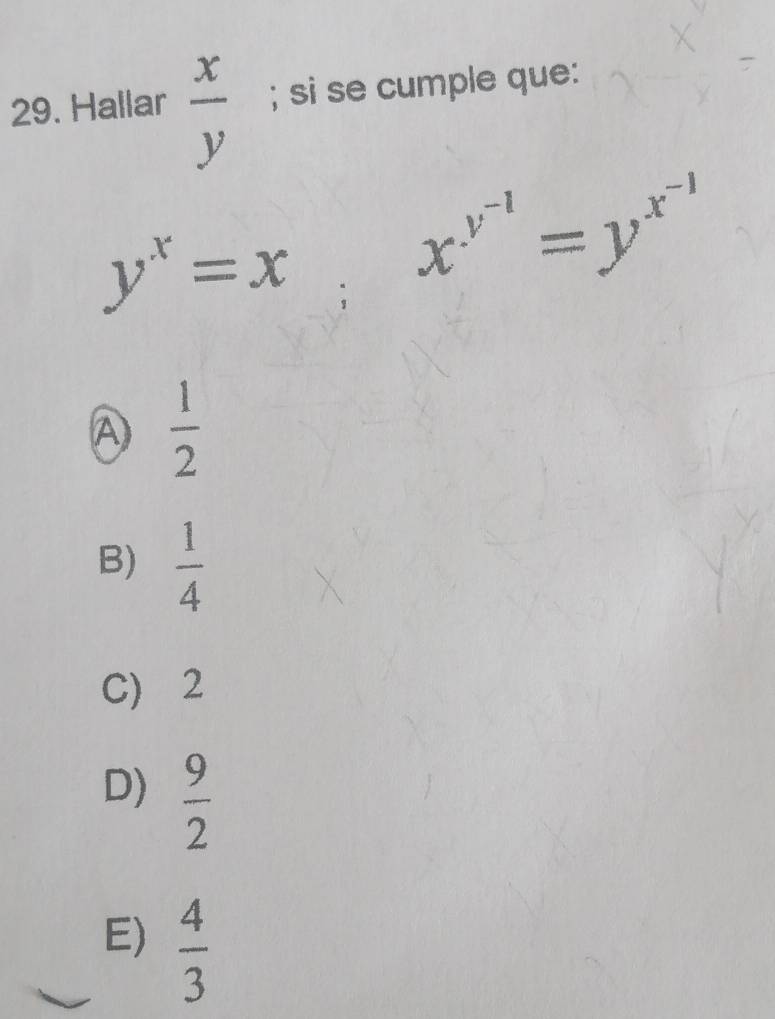 29. Hallar x/y ; si se cumple que:
y^x = x ; x^{y^{-1}} = y^{x^{-1}}
A) 1/2
B) 1/4
C) 2
D) 9/2
E) 4/3